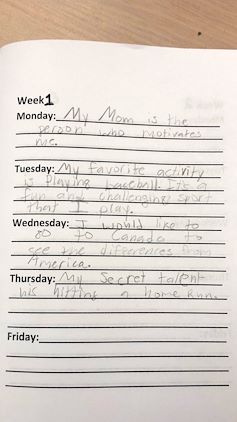 Week1
Monday: My Mom is the
person who motivates
me.
Tuesday: My favorite activity
is playing baseball. It's a
fun and challenging sport
that I play.
Wednesday: I would like to
go to Canada to
see the differences from
America.
Thursday: My Secret talent
his hitting a home run.
Friday: